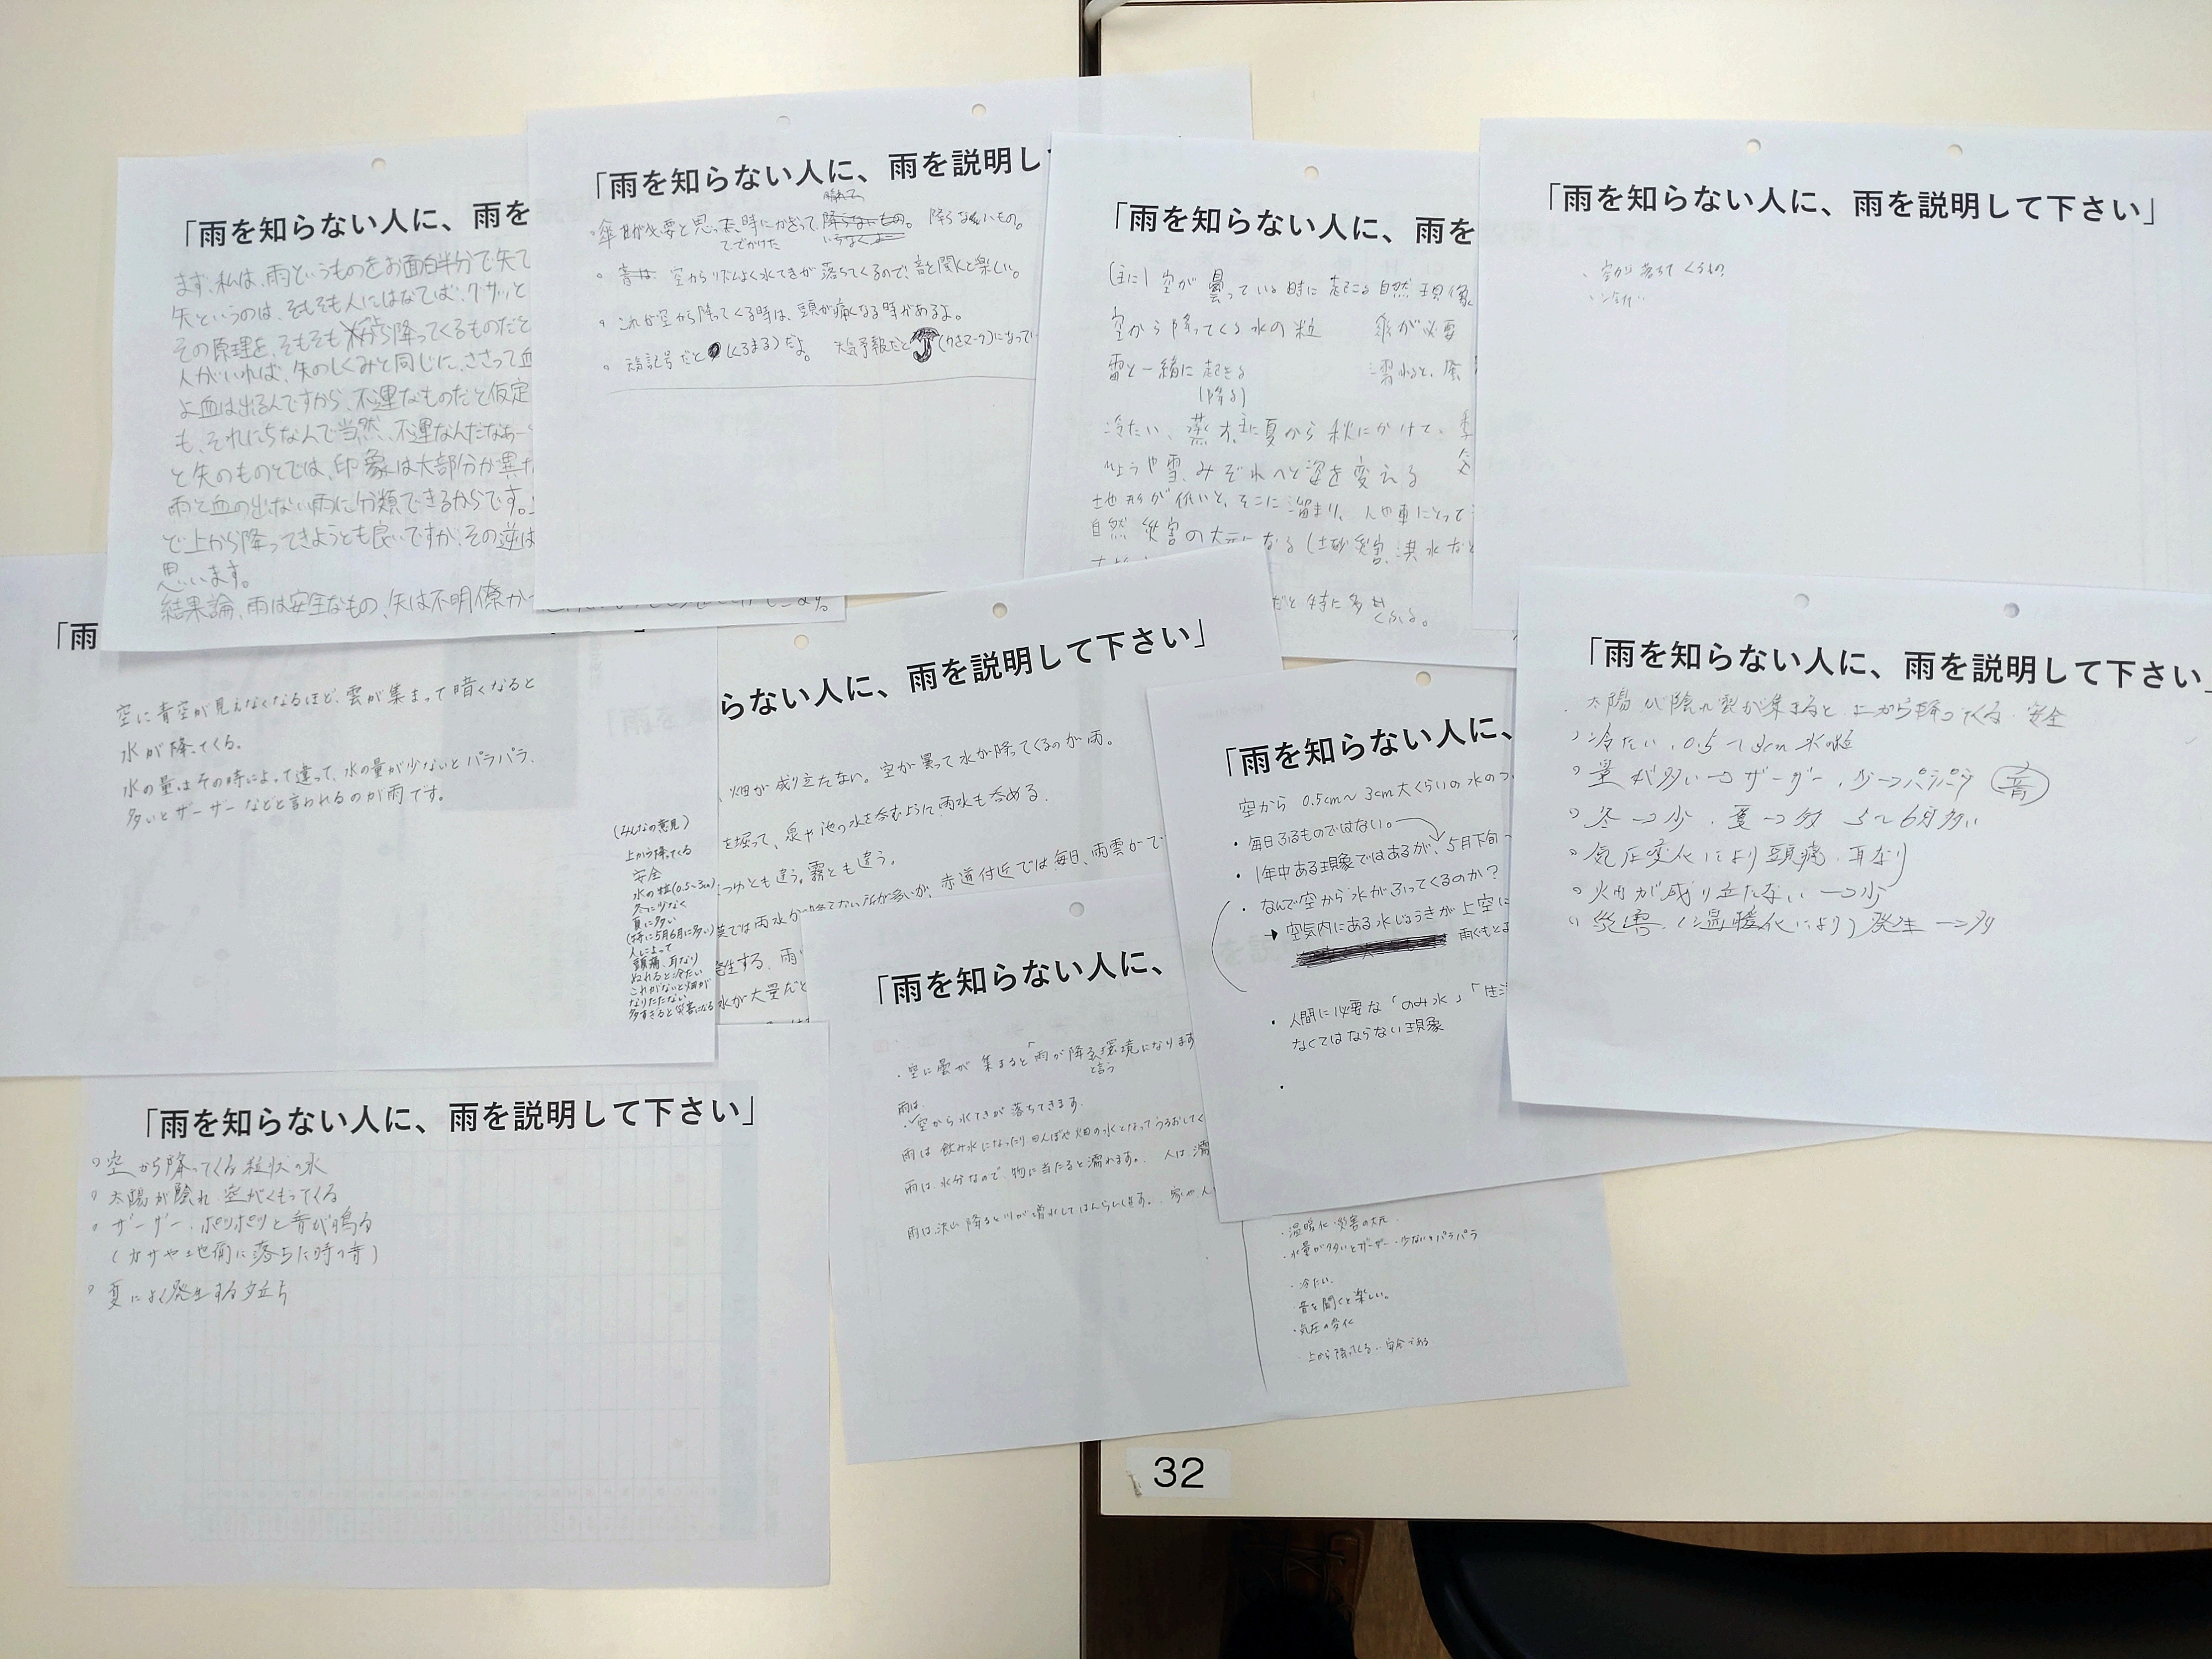 「雨を知らない人に、雨を
まず、私は、雨というものをお面白半分で矢て
矢というのは、そもそも人にはなてば、クサッと
その原理を、そもそも から降ってくるものだと
人がいれば、矢のしくみと同じに、ささって血
よ血は出るんですから、不運なものだと仮定
も、それにちなんで当然、不運なんだなあー
と矢のものとでは、印象は大部分が異な
雨と血の出ない雨に分類できるからです。
で上から降ってきようとも良いですか、その逆は
思います。
結果論、雨は安全なもの、矢は不明僚か
「雨を知らない人に、雨を説明し
傘が必要と思っ 時にかぎって、降らないもの。 降らないもの。
てでかけた
空からリズムよく水てきが落ちてくるので、音を聞くと楽しい。
これが空から降ってくる時は、頭が痛くなる時があるよ。
天気記号だと (くろまる)だよ。 天気予報だと (かさマーク)になってい
「雨を知らない人に、雨を
(主に) 空が曇っている時に起こる自然現象
空から降ってくる水の粒 傘が必要
雷と一緒に起きる 濡れると、
(降る)
冷たい、 主に夏から秋にかけて、
ひょうや雪、みぞれへと姿を変える
地形が低いと、そこに溜まり、人や車にとって
自然災害の大元になる (土砂災害、洪水など
だと特に多
「雨を知らない人に、雨を説明して下さい」
空から落ちてくるもの
冷たい
「雨
空に青空が見えなくなるほど、雲が集まって暗くなると
水が降ってくる。
水の量はその時によって違って、水の量が少ないとパラパラ、
多いとザーザーなどと言われるのが雨です。
(みんなの意見)
上から降ってくる
安全
水の粒(0.5~3cm)
冬に少なく
夏に多い
(特に5月6月に多い)
人によって
頭痛、耳なり
ぬれると冷たい
これがないと畑が
なりたたない
多すぎると災害になる
らない人に、雨を説明して下さい」
畑が成り立たない。空が曇って水が降ってくるのが雨。
を掘って、泉や池の水を呑むように雨水も呑める。
つゆとも違う。霧とも違う。
では雨水が ない所が多いが、赤道付近では毎日、雨雲がで
発生する。雨
水が大量だと
「雨を知らない人に、
空から 0.5cm~3cm大くらいの水のつ
・毎日ふるものではない。
・1年中ある現象ではあるが、5月下旬~
・なんで空から水がふってくるのか?
→空気内にある水じょうきが上空に
雨ぐもとよ
・人間に必要な「のみ水」「生活
なくてはならない現象
・
「雨を知らない人に、雨を説明して下さい
・太陽が陰れ雲が集まると上から降ってくる 安全
冷たい、0.5~3cm 水の粒
量が多い→ザーザー、少→パラパラ 音
冬→少、夏→多 5~6月多い
気圧変化により頭痛、耳なり
畑が成り立たない→少
災害(温暖化により)発生→多
「雨を知らない人に、雨を説明して下さい」
空から降ってくる粒状の水
太陽が陰れ空がくもってくる
ザーザー、ポツポツと音が鳴る
(カサや地面に落ちた時の音)
夏によく発生する夕立ち
「雨を知らない人に、
・空に雲が集まると「雨が降る環境になります
と言う
雨は、
・空から水てきが落ちてきます。
雨は飲み水になったり田んぼや畑の水となってうるおしてく
雨は水分なので、物に当たると濡れます。 人は濡
雨は沢山降ると川が増水してはんらんします。 家や人
・温暖化 災害の大元
・水量が多いとザーザー・少ないとパラパラ
・冷たい
・音を聞くと楽しい。
・気圧の変化
・上から降ってくる・安全である
32